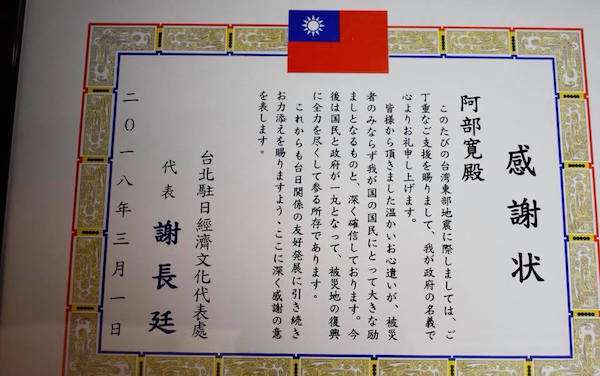 感謝状
阿部寛殿
このたびの台湾東部地震に際しましては、ご
丁重なご支援を賜りまして、我が政府の名義で
心よりお礼申し上げます。
皆様から頂きました温かいお心遣いが、被災
者のみならず我が国の国民にとって大きな励
ましとなるものと、深く確信しております。今
後は国民と政府が一丸となって、被災地の復興
に全力を尽くして参る所存であります。
これからも台日関係の友好発展に引き続き
お力添えを賜りますよう、ここに深く感謝の意
を表します。
台北駐日經濟文化代表處
代表 謝長廷
二〇一八年三月一日